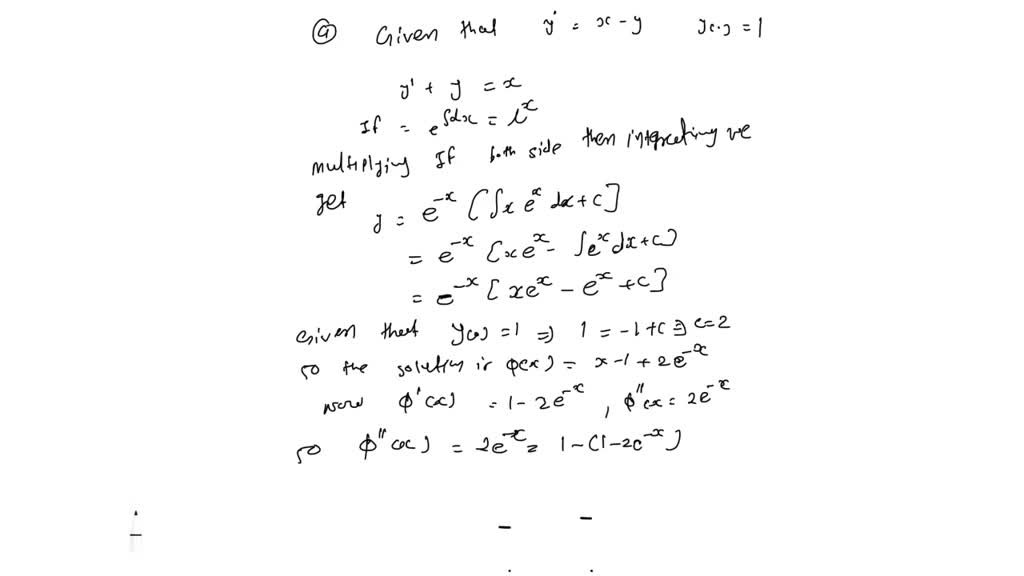 ⓐ Given that y' = x - y y(.) = 1
y' + y = x
If = e^∫dx = e^x
multiplying If both side then integrating we
get
y = e^-x [∫x e^x dx + c]
= e^-x [xe^x - ∫e^x dx + c]
= e^-x [xe^x - e^x + c]
Given that y(0) = 1 ⇒ 1 = -1 + c ⇒ c = 2
so the solution is φ(x) = x - 1 + 2e^-x
now φ'(x) = 1 - 2e^-x , φ''(x = 2e^-x
so φ''(x) = 2e^-x = 1 - (1 - 2e^-x)